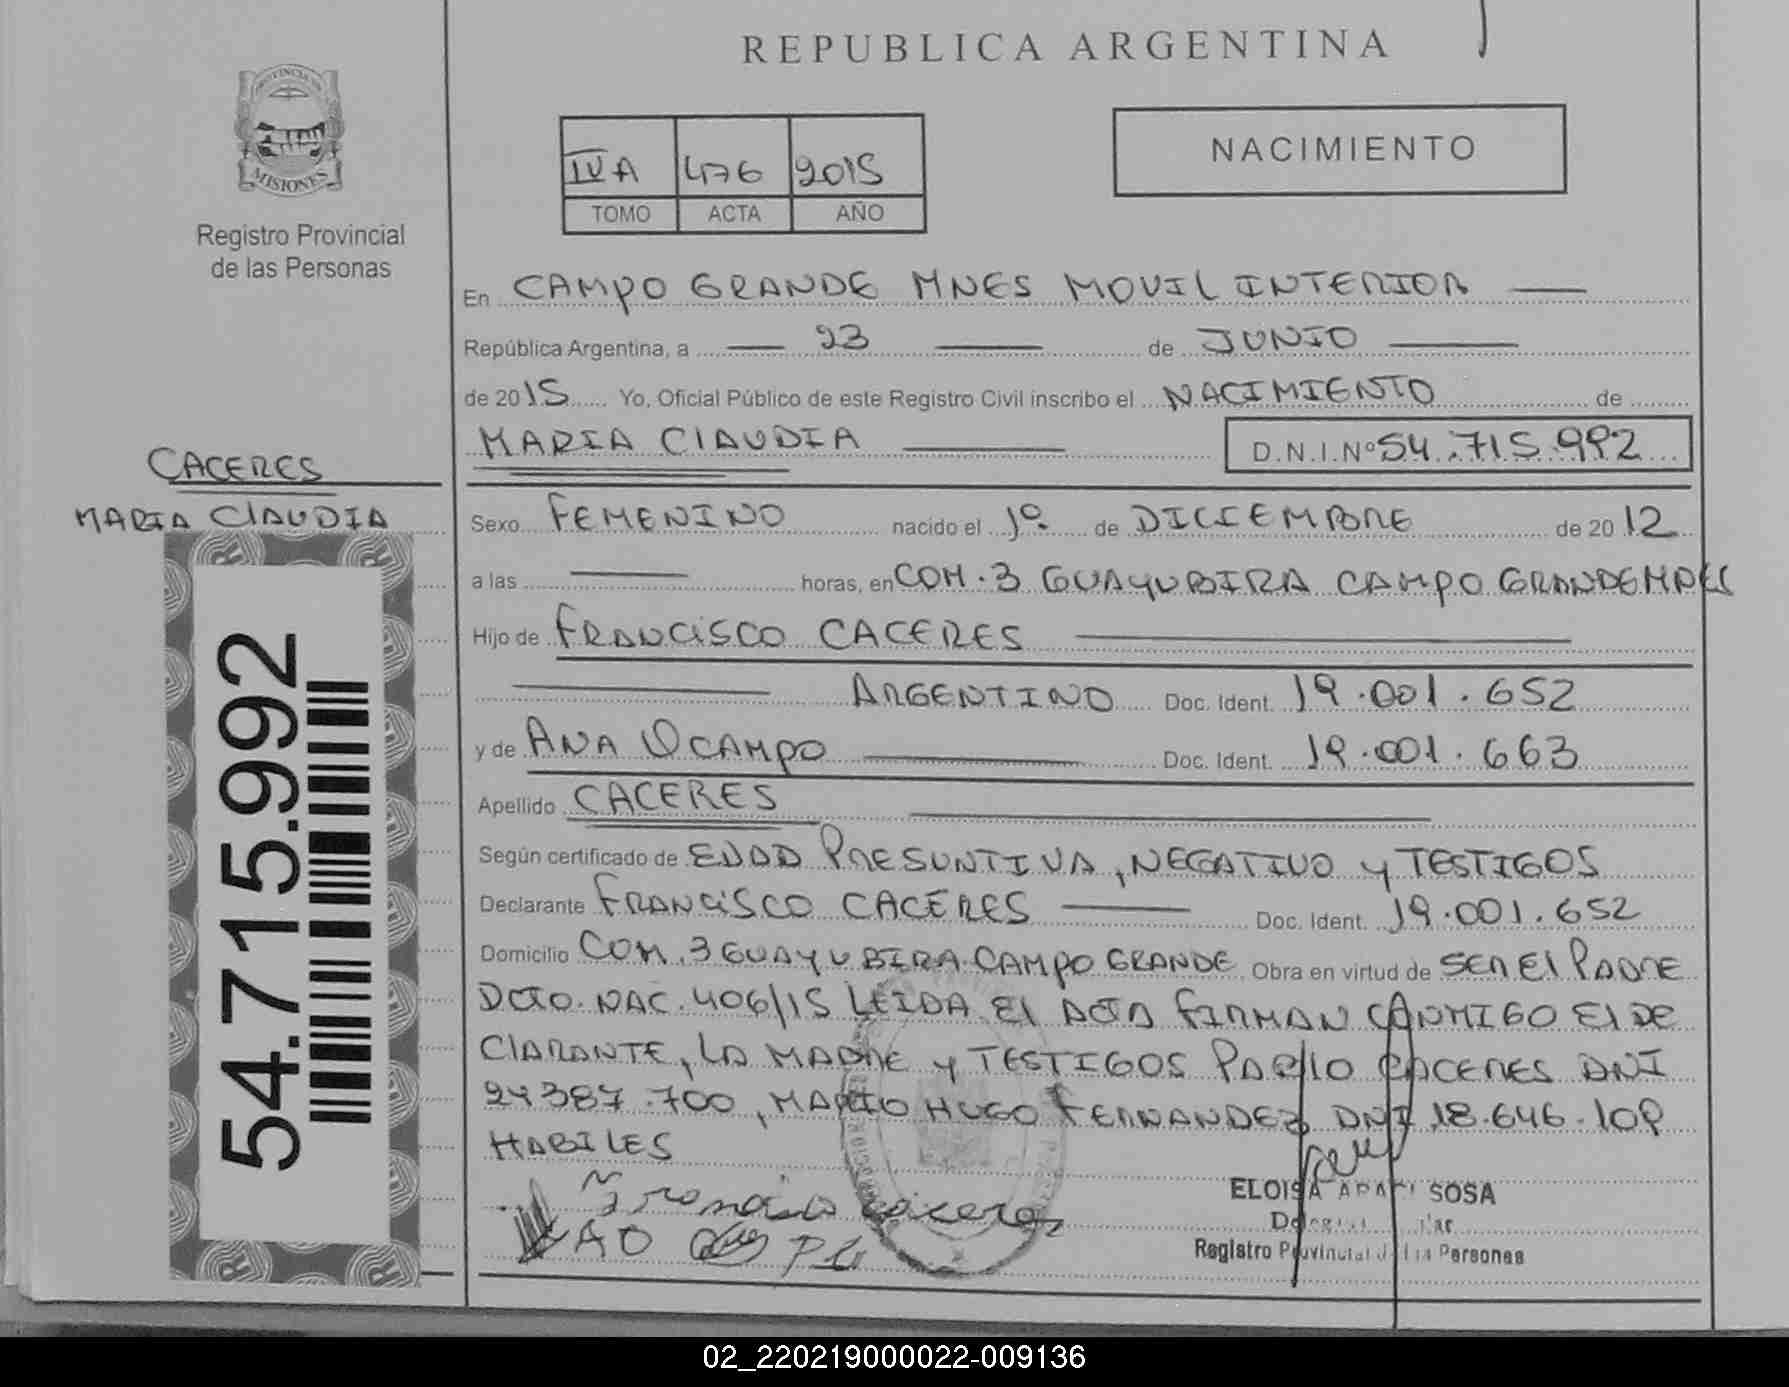 REPUBLICA ARGENTINA
PROVINCIA DE
MISIONES
Registro Provincial
de las Personas
IVA 476 2015
TOMO ACTA AÑO
NACIMIENTO
En CAMPO GRANDE MNES MOVIL INTERIOR
República Argentina, a 23 de JUNIO
de 2015 Yo, Oficial Público de este Registro Civil inscribo el NACIMIENTO de
MARIA CLAUDIA D.N.I.Nº 54.715.992
CACERES
MARIA CLAUDIA
54.715.992
Sexo FEMENINO nacido el 1º de DICIEMBRE de 2012
a las horas, en COM. 3 GUAYUBIRA CAMPO GRANDE MNES
Hijo de FRANCISCO CACERES
ARGENTINO Doc. Ident. 19.001.652
y de ANA OCAMPO Doc. Ident. 19.001.663
Apellido CACERES
Según certificado de EDAD PRESUNTIVA, NEGATIVO y TESTIGOS
Declarante FRANCISCO CACERES Doc. Ident. 19.001.652
Domicilio COM. 3 GUAYUBIRA CAMPO GRANDE Obra en virtud de SER EL PADRE
DCTO. NAC. 406/15 LEIDA EL ACTA FIRMAN CONMIGO EL DE
CLARANTE, LA MADRE y TESTIGOS PABLO CACERES DNI
24387.700, MARIO HUGO FERNANDEZ DNI 18.646.109
HABILES
Francisco Caceres
AO
ELOISA SOSA
Registro Provincial de las Personas
02_220219000022-009136